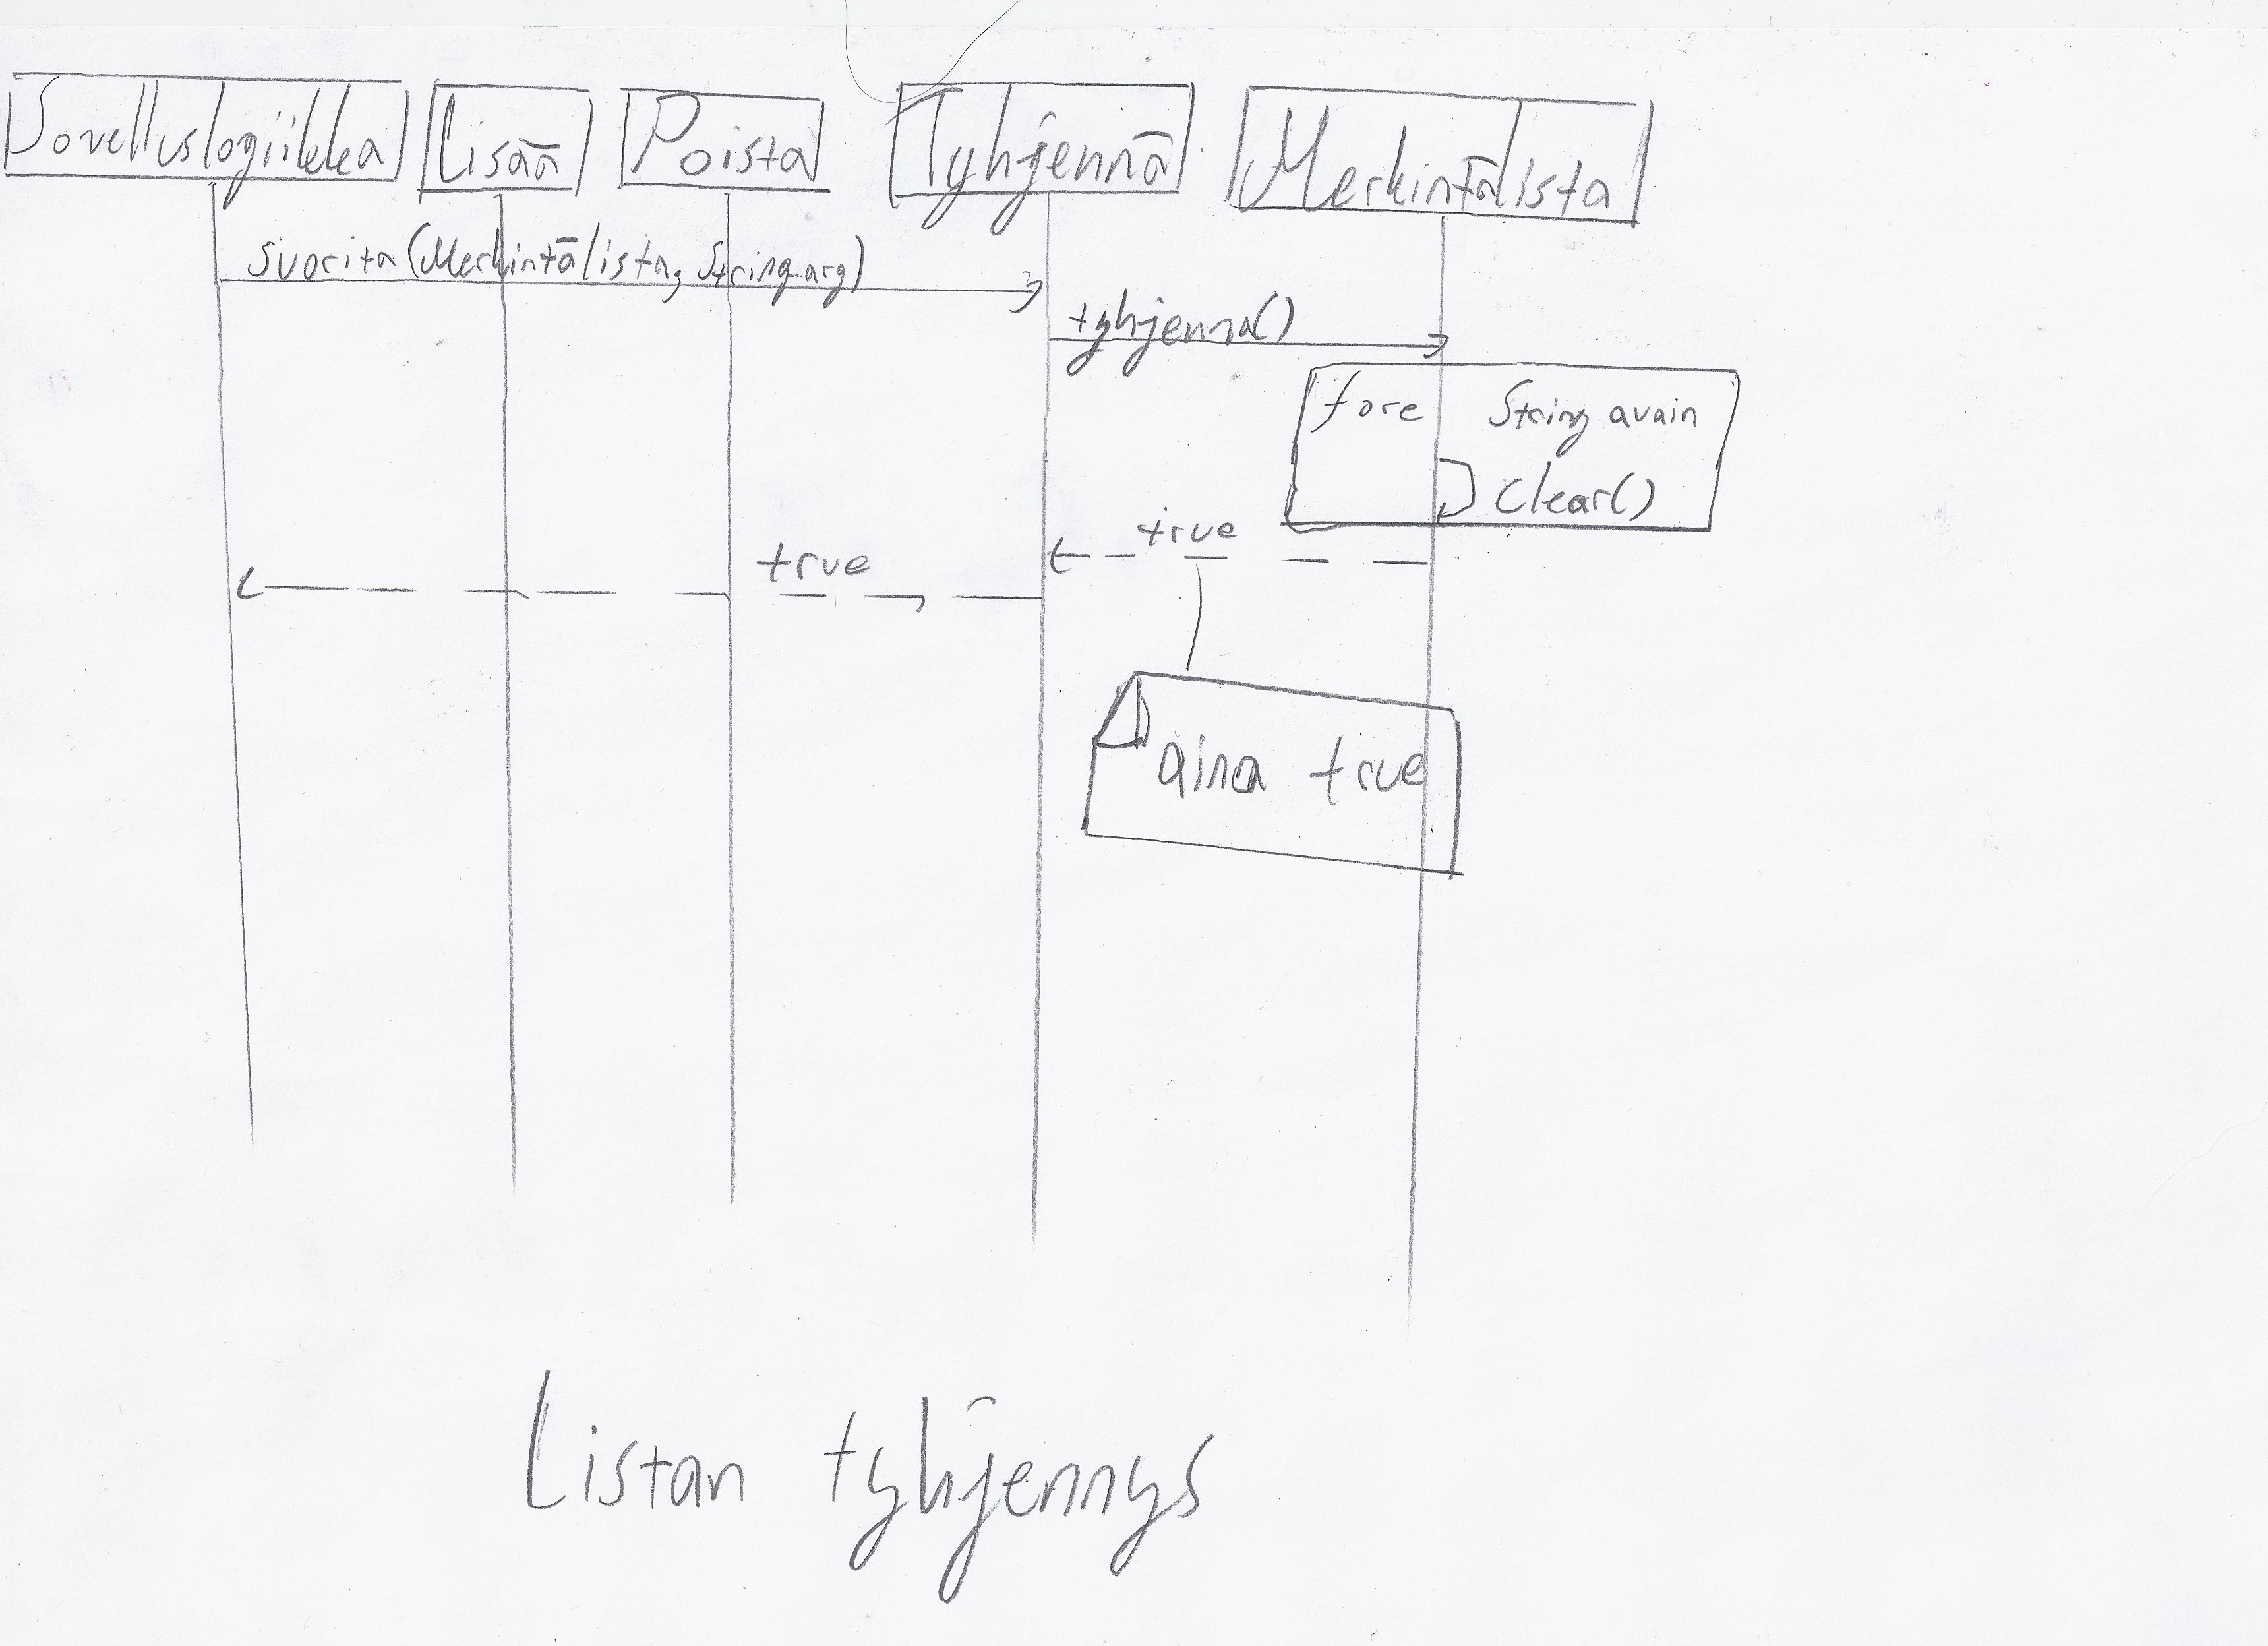 Sovelluslogiikka
Lisää
Poista
Tyhjennä
Merkintälista
suorita(Merkintälista, String arg)
tyhjenna()
fore String avain
Clear()
true
true
aina true
Listan tyhjennys